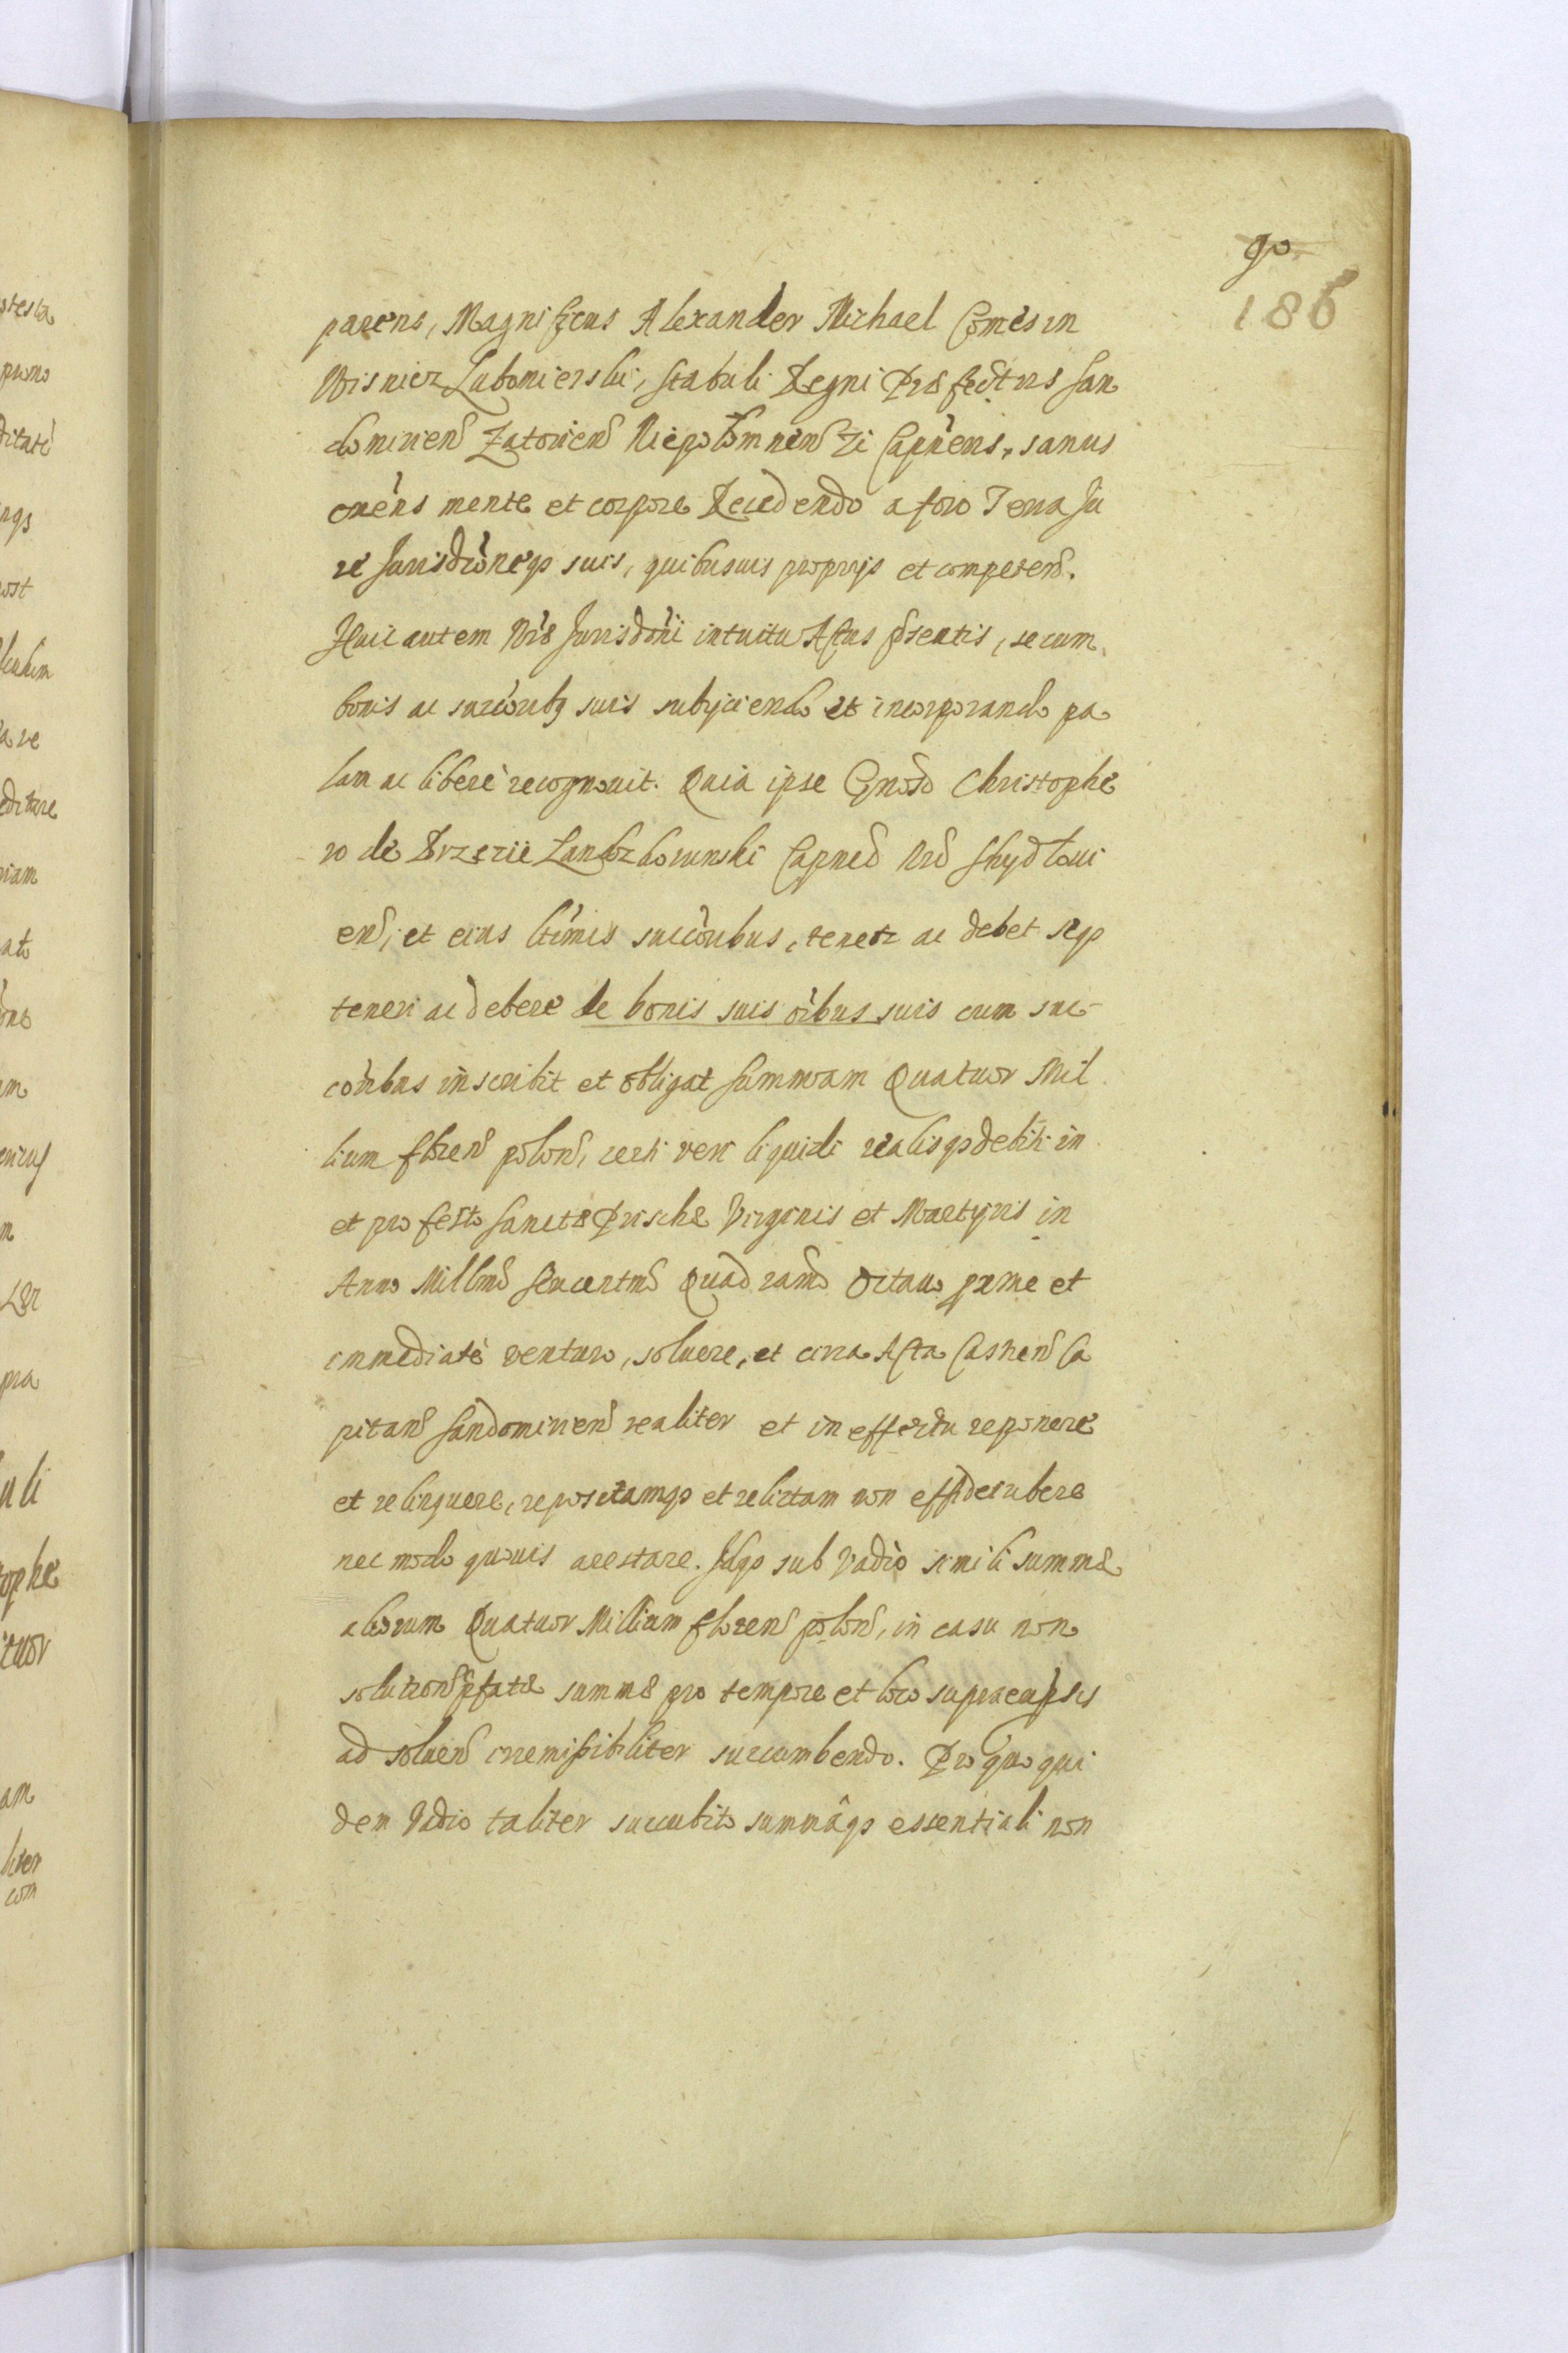 90
186
parens, Magnificus Alexander Michael Comes in
Wisnicz Lubomierski, Stabuli Regni Præfectus San
domirien Zatorien Niepolomnen Zč Capnens, sanus
onens mente et corpore Recedendo a foro Terra Ju
re Jurisdònēqs suis, quibusuis proprijs et competen.
Huic autem Nræ Jurisdòni intuitu Actus psentis, se cum
bonis ac succòribq suis subyciendo et incorporando pa
lam ac liberè recognouit. Quia ipse Gnoso Christophe
ro de Brzezie Lanckorunski Capneo Nro Skydloui
en, et eius ltìmis succòribus, tenetr ac debet seqs
teneri ac debere de bonis suis oìbus suis cum suc-
còribus inscribit et obligat summam Quatuor Mil
lium floren polon, certi veri liquidi realisqs debiti in
et pro festo Sanctæ Prischæ Virginis et Martyris in
Anno Millmo Sexcentmo Quadramo Octauo prme et
immediatè venturo, soluere, et circa Acta Castren Ca
pitan Sandomirien realiter et in effectu reponere
et relinquere, repositamqs et relictam non effidecubere
nec modo quouis arestare. Idqs sub Vadio simili summæ
aliorum Quatuor Millium floren polon, in casu non
solution pfatæ summæ pro tempore et loco supraexpssis
ad soluen irremissibiliter succumbendo. Pro quo qui
dem Vadio taliter succubito summâqs essentiali non